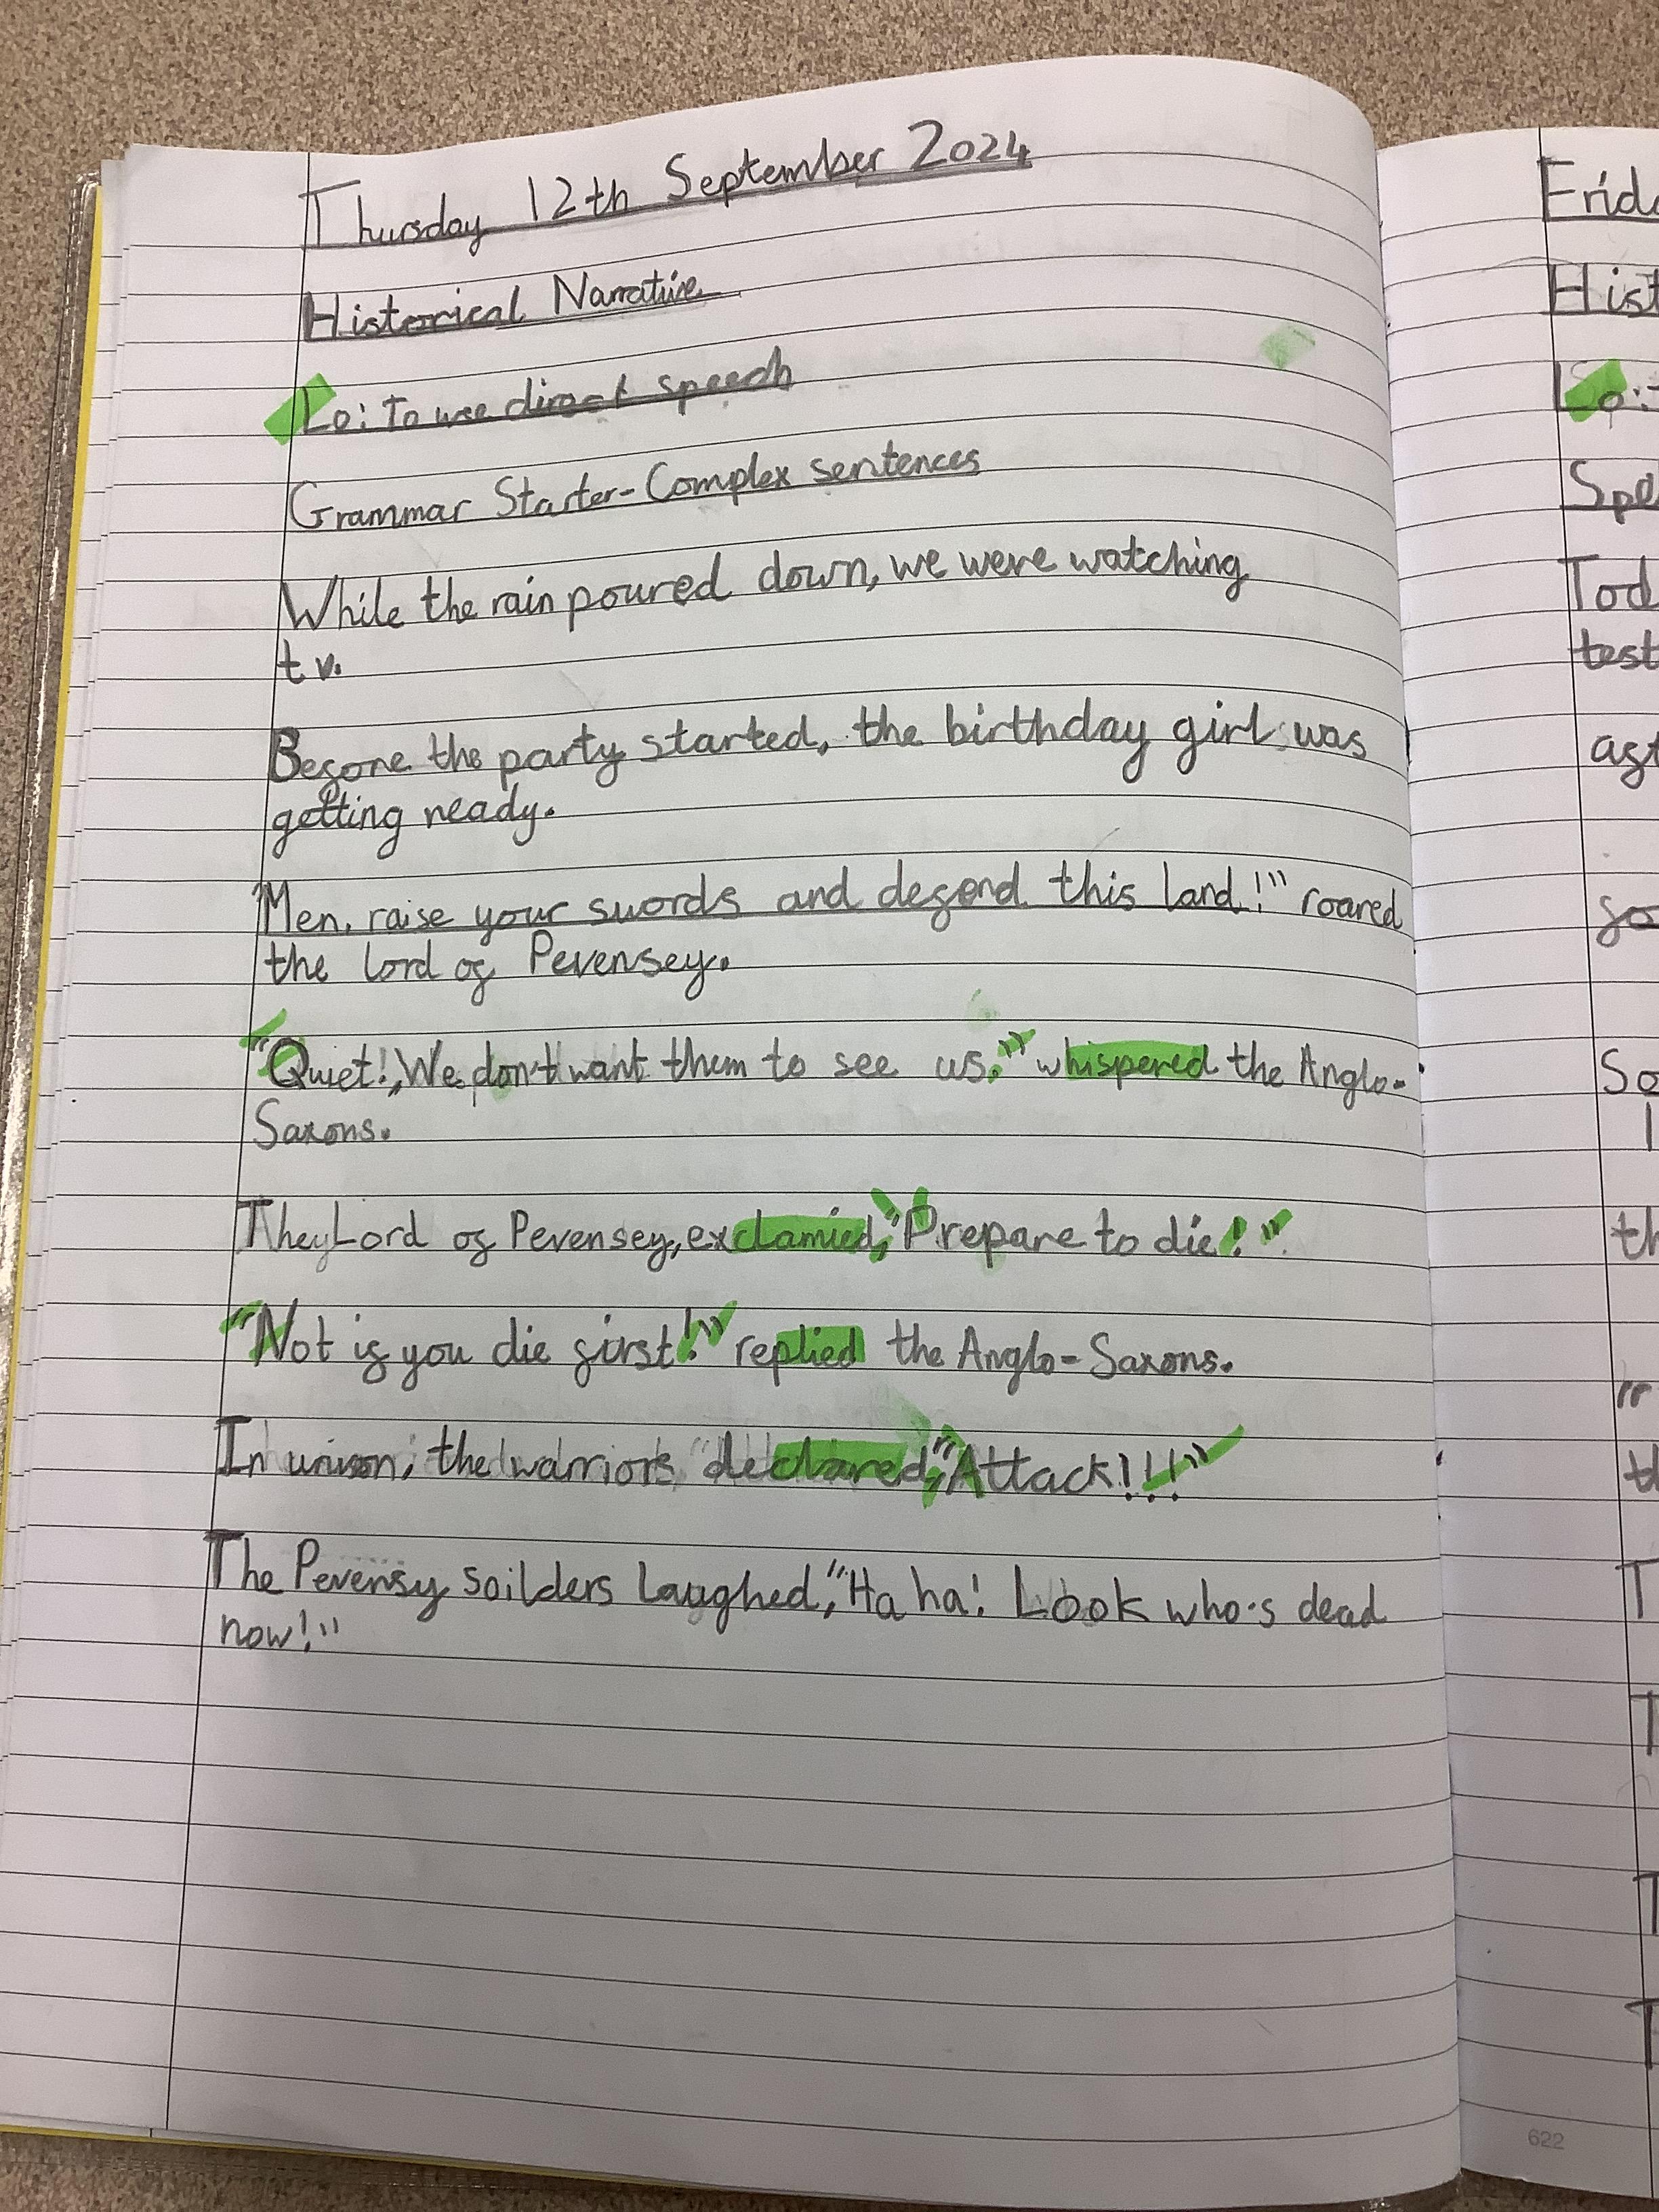 Thursday 12th September 2024
Historical Narrative
Lo: To use direct speech
Grammar Starter-Complex sentences
While the rain poured down, we were watching
tv.
Before the party started, the birthday girl was
getting ready.
"Men, raise your swords and defend this land!" roared
the lord of Pevensey.
"Quiet! We don't want them to see us." whispered the Anglo-
Saxons.
They Lord of Pevensey, exclamied, "Prepare to die!"
"Not if you die first!" replied the Anglo-Saxons.
In unison, the warriors declared, "Attack!!!"
The Pevensy soilders laughed, "Ha ha! Look who's dead
now!"
Frid
Hist
Lo:
Spe
Tod
test
So
622